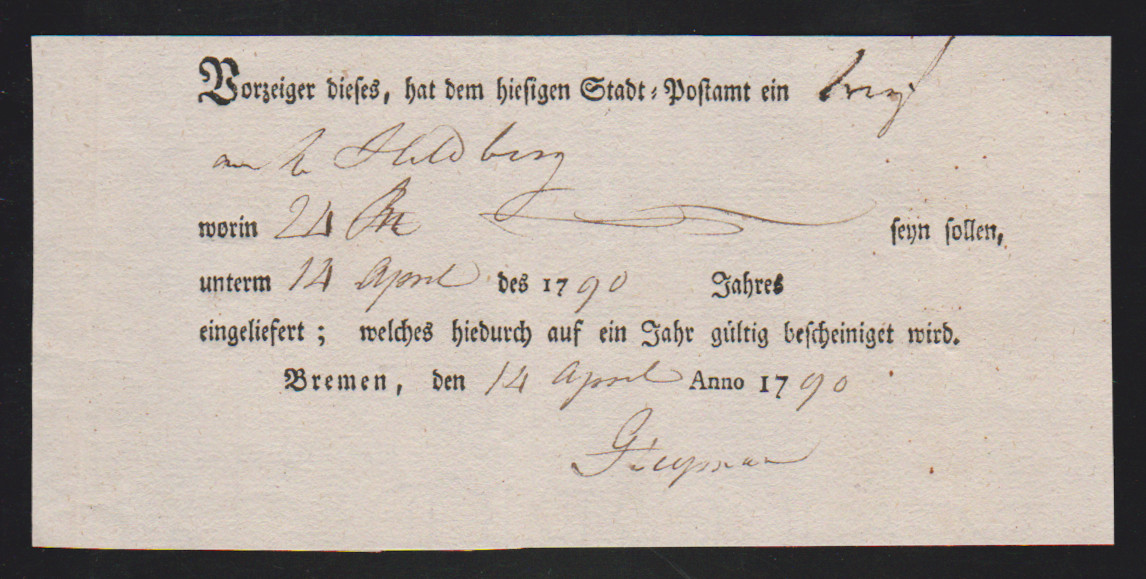 Vorzeiger dieses, hat dem hiesigen Stadt-Postamt ein brief
an
worin 24 seyn sollen,
unterm 14 April des 1790 Jahres
eingeliefert; welches hiedurch auf ein Jahr gültig bescheiniget wird.
Bremen, den 14 April Anno 1790